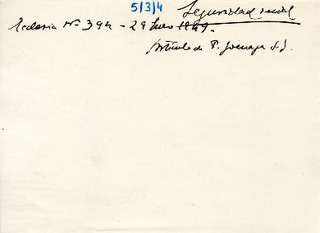 5/3/4
Seguridad social
Ecclesia Nº 394 - 29 Enero 1949.
Artículo de P. Joenaga S.J.